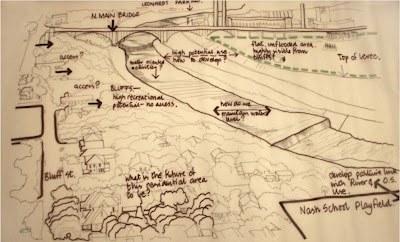 LEONARDT PARKING
N. MAIN BRIDGE
access?
access?
BLUFFS—
high recreational
potential—no access.
high potential use
how to develop?
flat, unflooded area.
highly visible from
Top of Levee.
how do we
maintain water
level?
Bluff St.
what is the future of
this residential area
to be?
develop positive link
with River & O.S.
use.
Nash School Playfield.